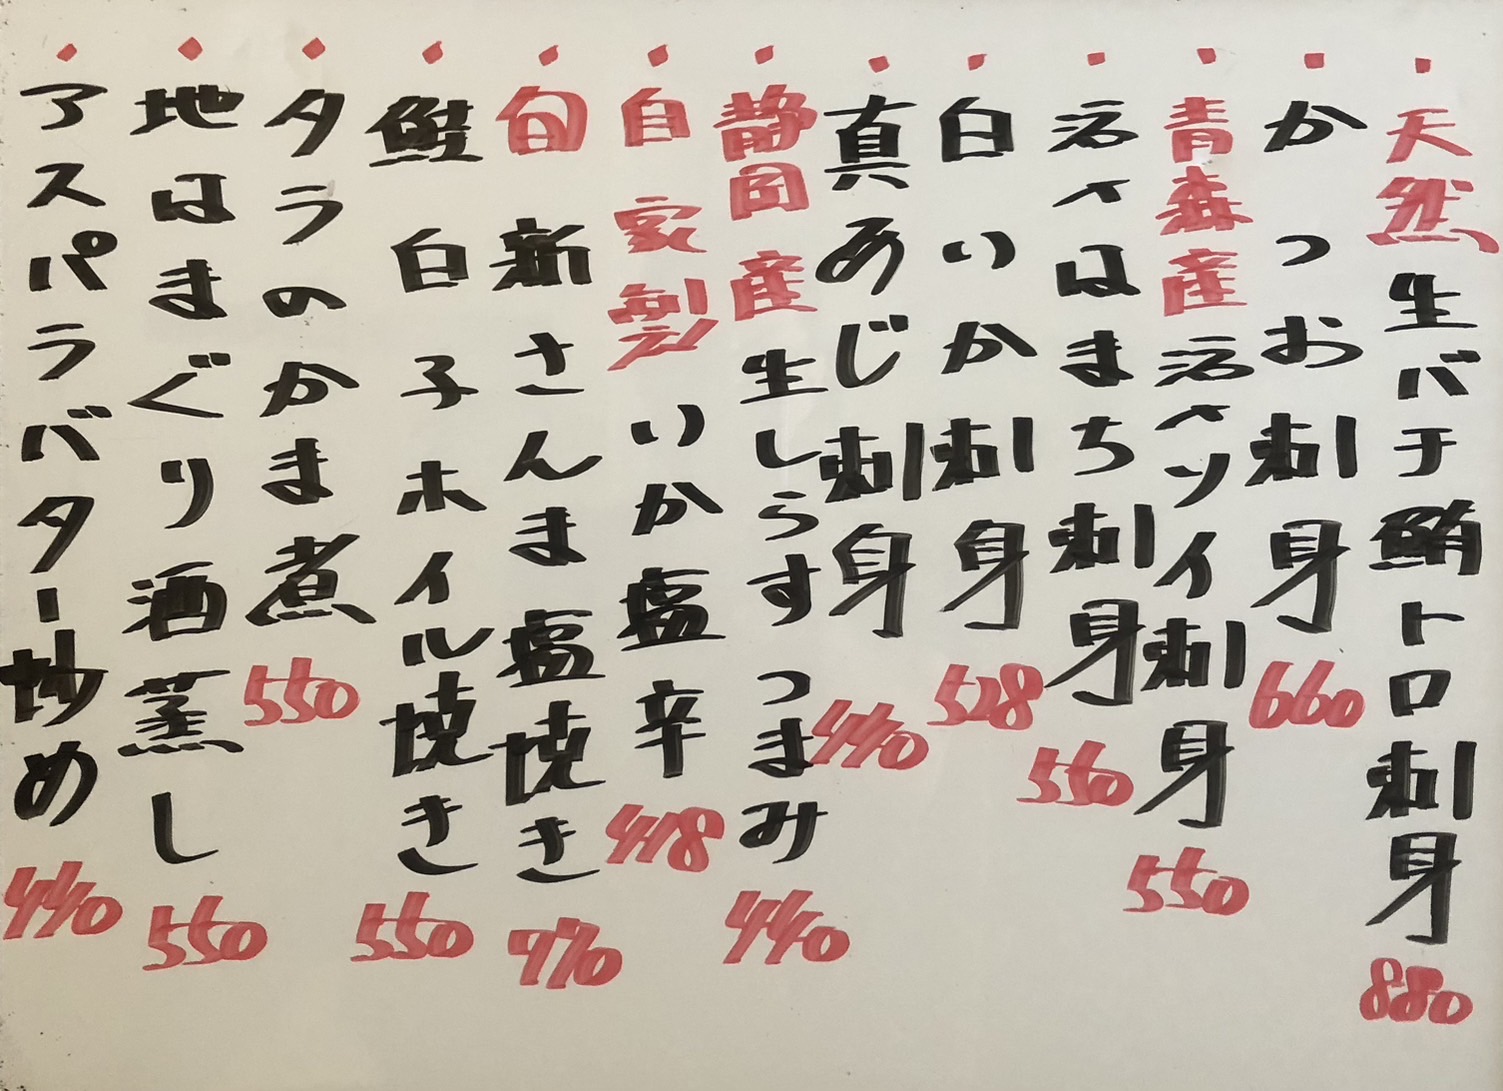 ・天然生バチ鮪トロ刺身 880
・かつお刺身 660
・青森産活〆ソイ刺身 550
・活〆はまち刺身 550
・白いか刺身 528
・真あじ刺身 440
・静岡産生しらすつまみ 440
・自家製いか塩辛 418
・旬新さんま塩焼き 770
・鮭白子ホイル焼き 550
・タラのかま煮 550
・地はまぐり酒蒸し 550
・アスパラバター炒め 440